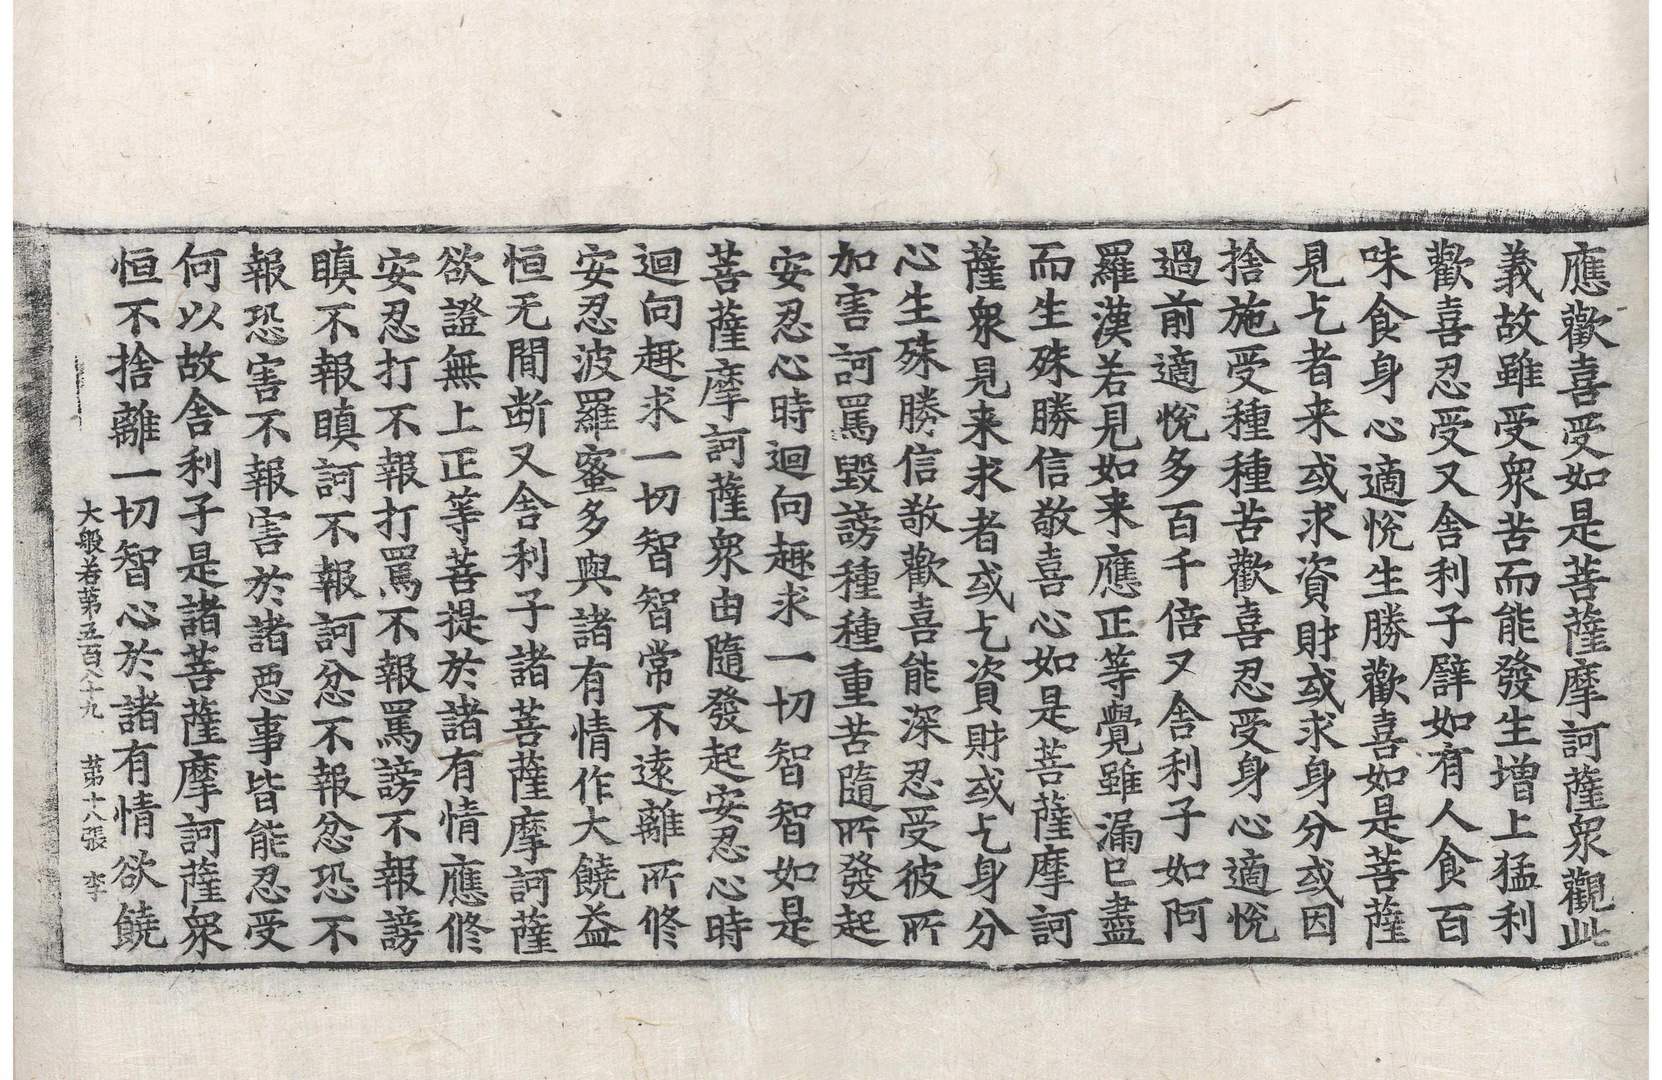 應歡喜受如是菩薩摩訶薩衆觀此
義故雖受衆苦而能發生增上猛利
歡喜忍受又舍利子譬如有人食百
味食身心適悅生勝歡喜如是菩薩
見乞者来或求資財或求身分或因
捨施受種種苦歡喜忍受身心適悅
過前適悅多百千倍又舍利子如阿
羅漢若見如来應正等覺雖漏已盡
而生殊勝信敬喜心如是菩薩摩訶
薩衆見来求者或乞資財或乞身分
心生殊勝信敬歡喜能深忍受彼所
加害訶罵毀謗種種重苦隨所發起
安忍心時迴向趣求一切智智如是
菩薩摩訶薩衆由隨發起安忍心時
迴向趣求一切智智常不遠離所修
安忍波羅蜜多與諸有情作大饒益
恒无間断又舍利子諸菩薩摩訶薩
欲證無上正等菩提於諸有情應修
安忍打不報打罵不報罵謗不報謗
瞋不報瞋訶不報訶忿不報忿恐不
報恐害不報害於諸惡事皆能忍受
何以故舍利子是諸菩薩摩訶薩衆
恒不捨離一切智心於諸有情欲饒
大般若第五百八十九 第十八張 李